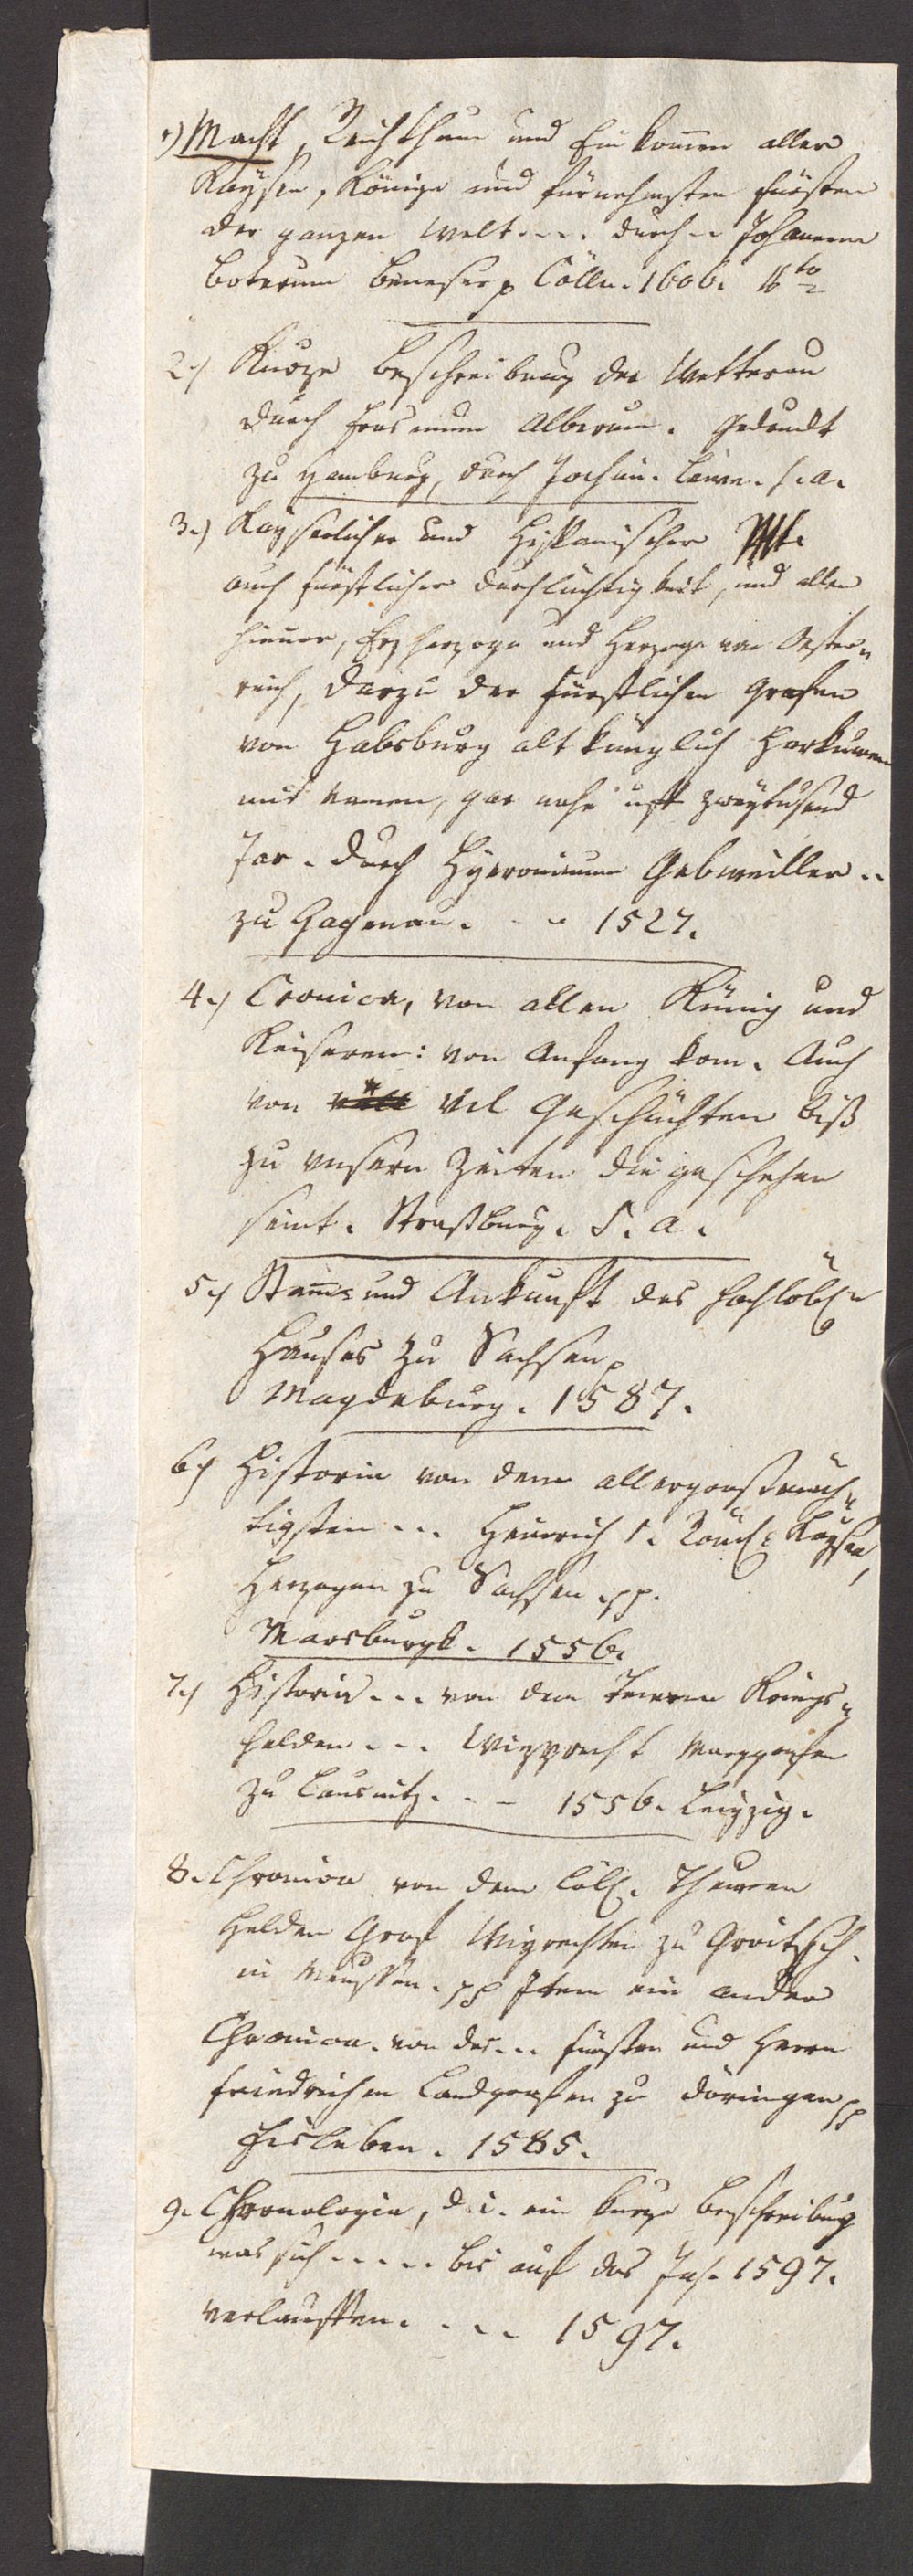 1) Macht, Reichthum und Einkomen aller
Kaysen, Könige und fürnehmsten fürsten
der ganzen Welt.... durch .. Johannem
Boterum Beneser p Cölln. 1606. 
2.) Kurze Beschreibung der Wetterau
durch Erasmum Alberum. Gedruckt
zu Hamburg, durch Jochim. Lewe. s. a.
3.) Kayserlicher und Hispanischer Mst.
auch fürstlicher durchlüchtigkeit, und allen
hieuor, Erzherzoge und Herzoge von Oester=
reich, darzu der fürstlichen Grafen
von Habsburg alt künglich Harkumen
und namen, gar nahe uff zweytusend
Jar. durch Hyeronimum Gebweiller..
zu Hagenau. .. 1527.
4.) Cronica, von allen Künig und
Keiseren: von Anfang Rom. Auch
von vil Geschichten biß
zu unsern Zeiten die geschehen
seint. Straßburg. s. a.
5.) Stam= und Ankunft des hochlöbl=
Hauses zu Sachsen p
Magdeburg. 1587.
6.) Historia von dem allergroßmäch=
tigsten ... Heinrich 1. Römsch: Kayser,
Herzogen zu Sachsen. pp.
Marsburgk. 1556.
7.) Historia ... von dem Tewren Kriegs=
helden ... Wigprecht Marggrafen
zu Lausnitz. .. 1556. Leipzig.
8. Chronica von dem Löbl. Theuren
Helden Graf Wigrechten zu Groitzsch.
in Meussen. pp Item ein ander
Chronica. von des ... fürsten und Herrn
friedrichen Landgrafen zu Döringen pp
Eisleben. 1585.
9. Chronologia, d. i. ein kurze Beschreibug
was sich ..... bis auf das Jah. 1597.
verlauffen. ... 1597.